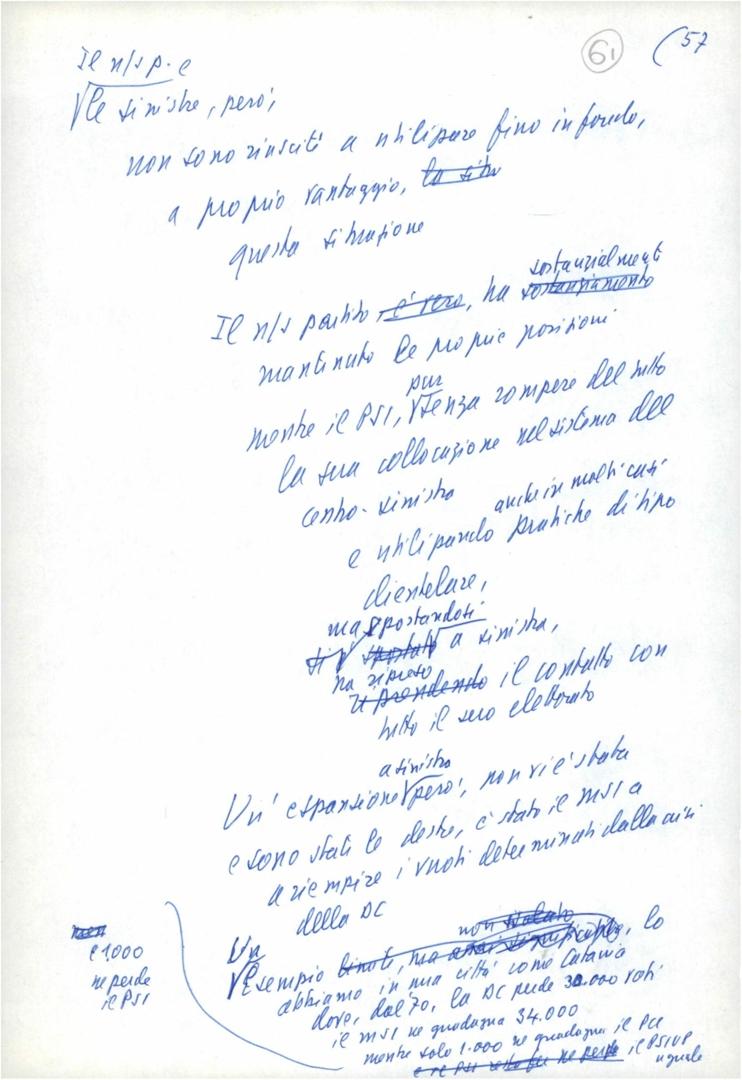 61
(57
Il n/s p. e
√le sinistre, però,
non sono riusciti a utilizzare fino in fondo,
a proprio vantaggio, la situ
questa situazione
sostanzialmente
Il n/s partito è vero, ha sostanziamento
mantenuto le proprie posizioni
pur
mentre il PSI, √senza rompere del tutto
la sua collocazione nel sistema del
centro-sinistra
anche in molti casi
e utilizzando pratiche di tipo
clientelare,
ma spostandosi
si √ spostato a sinistra,
ha ripreso
riprendendo il contatto con
tutto il suo elettorato
a sinistra
Un' espansione √però, non vi è stata
e sono state le destre, è stato il MSI a
a riempire i vuoti determinati dalla crisi
della DC
Un non isolato
√Esempio limite, ma assai significativo, lo
abbiamo in una città come Catania
dove, dal 70, la DC perde 30.000 voti
il MSI ne guadagna 34.000
mentre solo 1.000 ne guadagna il PCI
ne perde il PSIUP
uguale
e 1.000
ne perde
il PSI